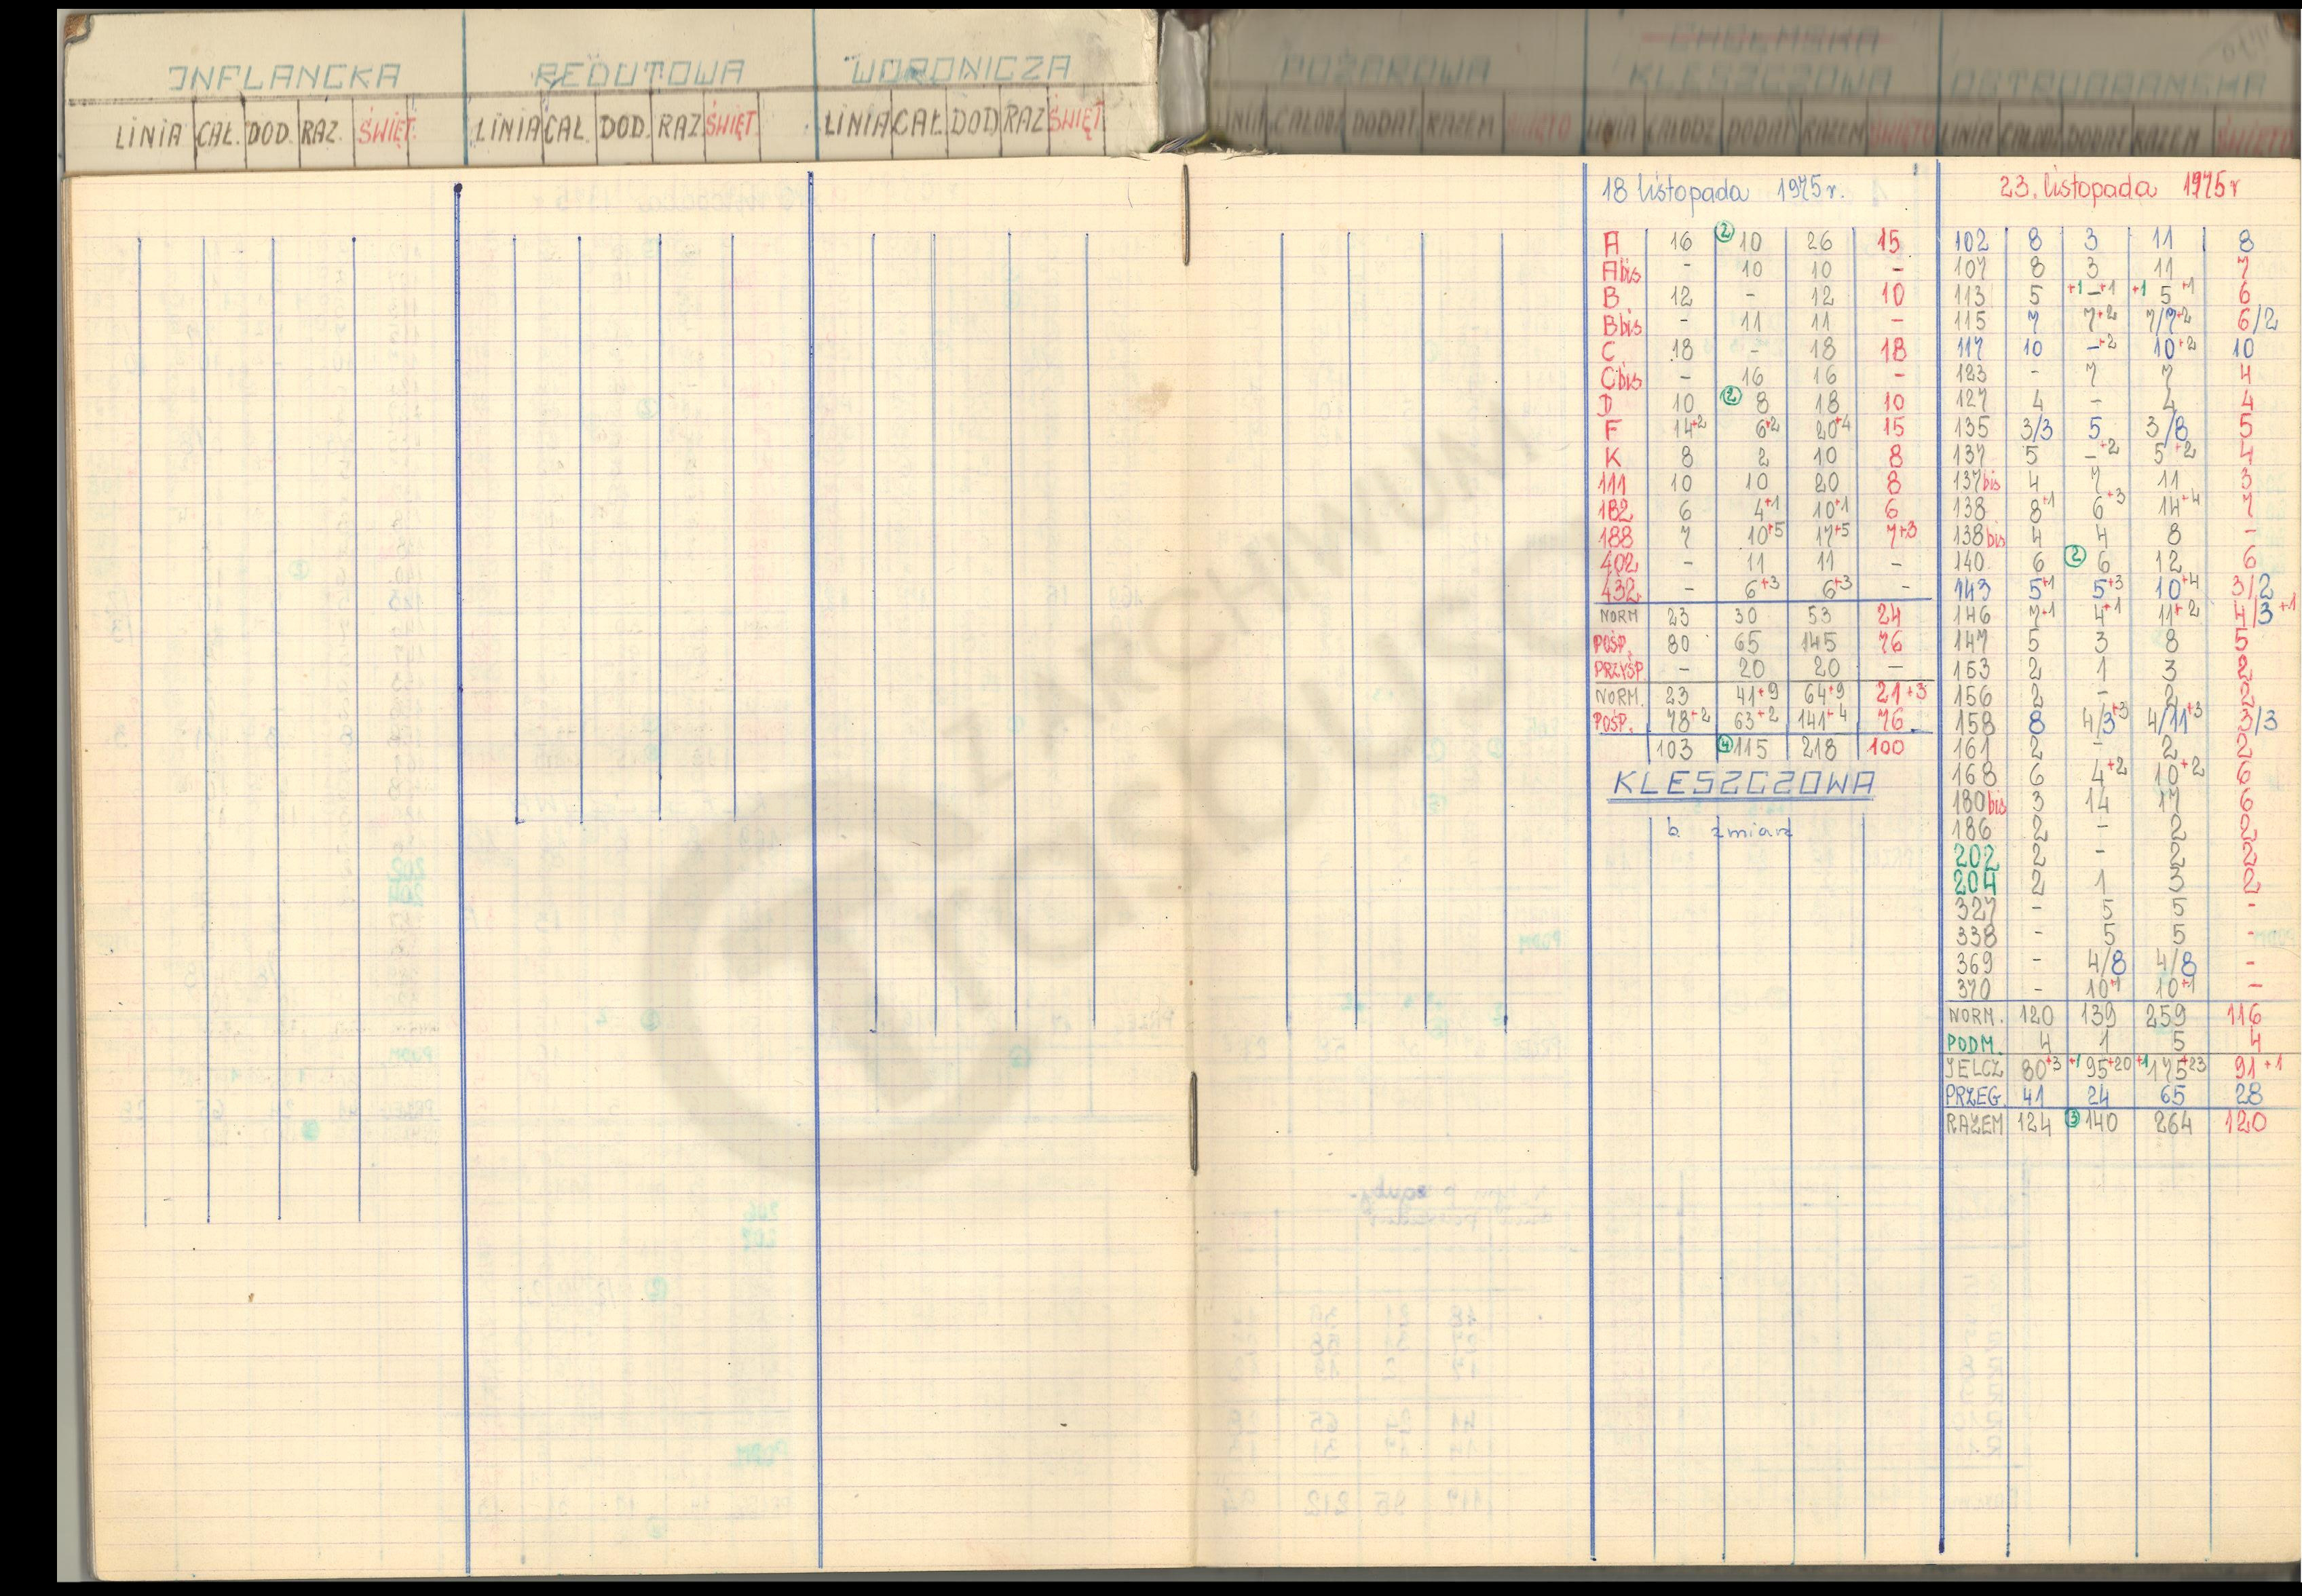 INFLANCKA REDUTOWA WORONICZA POŻAROWA CHEŁMSKA
KLESZCZOWA OSTROBRAMSKA
LINIA CAŁ. DOD. RAZ. ŚWIĘT. LINIA CAŁ. DOD. RAZ ŚWIĘT. LINIA CAŁ. DOD RAZ ŚWIĘT LINIA CAŁODZ DODAT. RAZEM ŚWIĘTO LINIA CAŁODZ DODAT RAZEM ŚWIĘTO LINIA CAŁODZ DODAT RAZEM ŚWIĘTO
18 listopada 1975 r.
A 16 ② 10 26 15
A bis - 10 10 -
B 12 - 12 10
B bis - 11 11 -
C 18 - 18 18
C bis - 16 16 -
D 10 ② 8 18 10
F 14+2 6+2 20+4 15
K 8 2 10 8
111 10 10 20 8
182 6 4+1 10+1 6
188 7 10+5 17+5 7+3
402 - 11 11 -
432 - 6+3 6+3 -
NORM 23 30 53 24
POŚP. 80 65 145 76
PRZYŚP - 20 20 -
NORM. 23 41+9 64+9 21+3
POŚP. 78+2 63+2 141+4 76
103 ④ 115 218 100
KLESZCZOWA
b. zmian
23. listopada 1975 r
102 8 3 11 8
107 8 3 11 7
113 5 +1 - +1 +1 5 +1 6
115 7 7+2 7/7+2 6/2
117 10 -+2 10+2 10
123 - 7 7 4
127 4 - 4 4
135 3/3 5 3/8 5
137 5 -+2 5+2 4
137 bis 4 7 11 3
138 8+1 6+3 14+4 7
138 bis 4 4 8 -
140 6 ② 6 12 6
143 5+1 5+3 10+4 3/2
146 7+1 4+1 11+2 4/3+1
147 5 3 8 5
153 2 1 3 2
156 2 - 2 2
158 8 4/3+3 4/11+3 3/3
161 2 - 2 2
168 6 4+2 10+2 6
180 bis 3 14 17 6
186 2 - 2 2
202 2 - 2 2
204 2 1 3 2
327 - 5 5 -
338 - 5 5 -
369 - 4/8 4/8 -
370 - 10+1 10+1 -
NORM. 120 139 259 116
PODM. 4 1 5 4
JELCZ 80+3 +1 95+20 +1 175+23 91+1
PRZEG. 41 24 65 28
RAZEM 124 ③ 140 264 120
Z ARCHIWUM
TOSKOWSCY